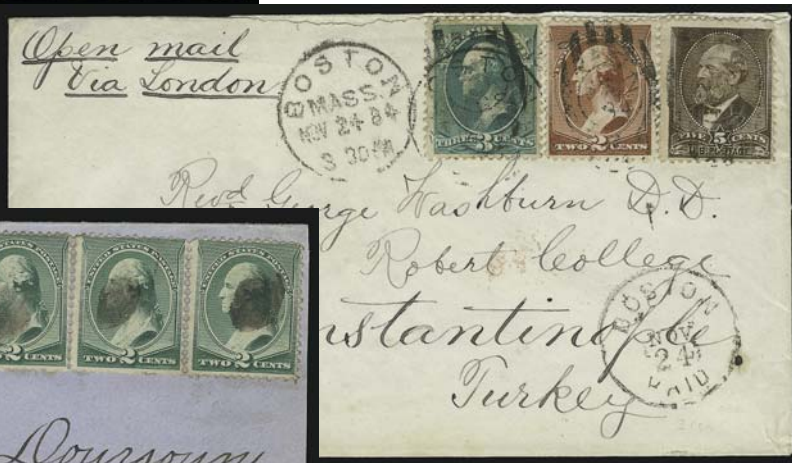 Open mail
Via London
BOSTON
MASS.
NOV 24 84
3 30 PM
THREE 3 CENTS
TWO 2 CENTS
FIVE 5 CENTS
U.S. POSTAGE
Revd George Washburn D.D.
Robert College
nstantinople
Turkey
BOSTON
NOV
24
PAID
UNITED STATES POSTAGE
TWO 2 CENTS
UNITED STATES POSTAGE
TWO 2 CENTS